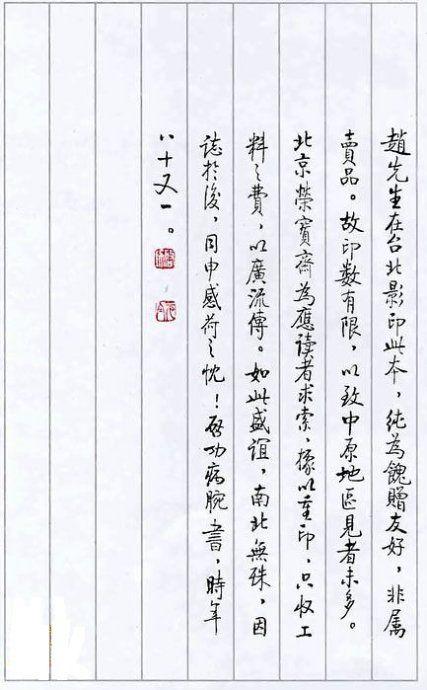 趙先生在台北影印此本，純為餽贈友好，非属
賣品。故印数有限，以致中原地區見者未多。
北京榮寶齋為應读者求索，據以重印，只收工
料之費，以廣流傳。如此盛誼，南北無殊，因
誌於後，用申感荷之忱！啓功病腕書，時年
八十又一。